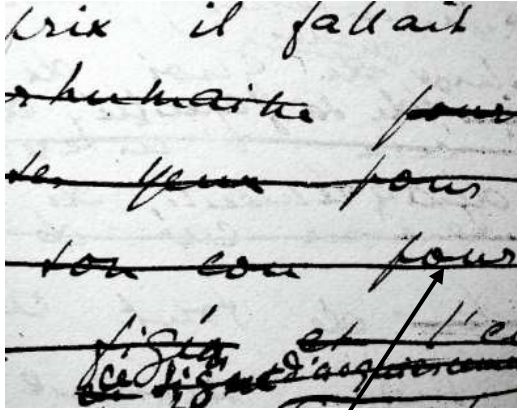 prix il fallait
rhumaine pour
ses yeux pour
son cou pour
et l'e
ce signe d'acquiesceme